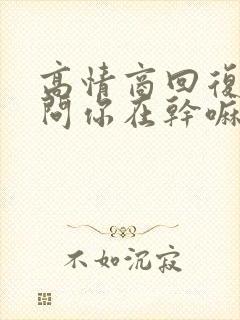 高情商回復
問你在幹嘛
不如沉寂